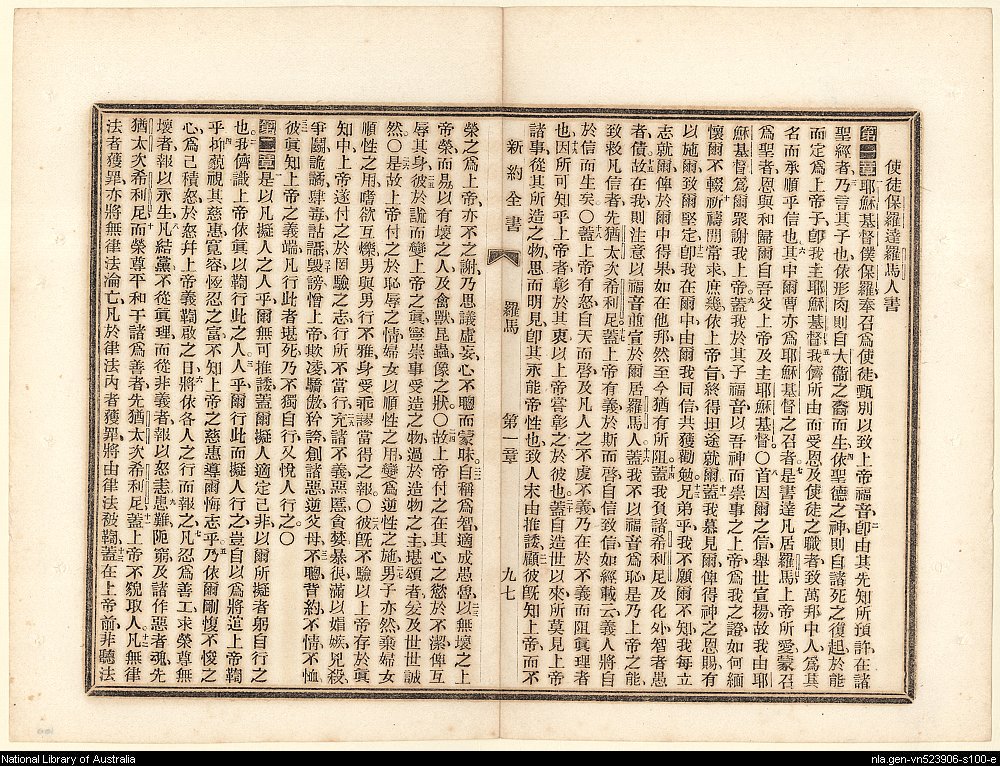 使徒保羅達羅馬人書
第一章耶穌基督僕保羅奉召爲使徒甄別以致上帝福音卽由其先知所預許在諸
聖經者乃言其子也依形肉則自大衞之裔而生依聖德之神則自諸死之復起於能
而定爲上帝子卽我主耶穌基督我儕所由而受恩及使徒之職者致萬邦中人爲其
名而承順乎信也其中爾曹亦爲耶穌基督之召者是書達凡居羅馬上帝所愛蒙召
爲聖者恩與和歸爾自吾父上帝及主耶穌基督○首因爾之信舉世宣揚故我由耶
穌基督爲爾衆謝我上帝蓋我於其子福音以吾神而崇事之上帝爲我之證如何緬
懷爾不輟祈禱間常求庶幾依上帝旨終得坦途就爾蓋我慕見爾俾得神之恩賜有
以施爾致爾堅定卽我在爾中由爾我同信共獲勸勉兄弟乎我不願爾不知我每立
志就爾俾於爾中得果如在他邦然至今猶有所阻蓋我負諸希利尼及化外智者愚
者債故在我則注意以福音煎宣於爾居羅馬人蓋我不以福音爲恥是乃上帝之能
致救凡信者先猶太次希利尼蓋上帝有義於斯而啓自信致信如經載云義人將自
於信而生矣○蓋上帝有怒自天而啓及凡人之不虔不義乃在於不義而阻眞理者
也因所可知乎上帝者彰於其衷以上帝嘗彰之於彼也蓋自造世以來所莫見上帝
諸事從其所造之物思而明見卽其永能帝性也致人末由推諉顧彼旣知上帝而不
新約全書 羅馬 第一章 九七
榮之爲上帝亦不之謝乃思議虛妄心不聰而蒙昧自稱爲智適成愚魯以無壞之上
帝榮而易以有壞之人及禽獸昆蟲像之狀○故上帝付之在其心之慾於不潔俾互
辱其身彼於詭而變上帝之眞寧崇事受造之物過於造物之主堪頌者爰及世世誠
然○是故上帝付之於恥辱之情婦女以順性之用變爲逆性之施男子亦然棄婦女
順性之用嗜欲互爍男與男行不雅身受乖謬當得之報○彼旣不驗以上帝存於眞
知中上帝遂付之於罔驗之志行所不當行充諸不義惡慝貪婪暴很滿以媢嫉兇殺
爭鬬詭譎肆毒詀讘毀謗憎上帝欺凌驕傲矜誇創諸惡逆父母不聰背約不情不恤
彼眞知上帝之義端凡行此者堪死乃不獨自行又悅人行之○
第二章是以凡擬人之人乎爾無可推諉蓋爾擬人適定己非以爾所擬者躬自行之
也我儕識上帝依眞以鞫行此之人人乎爾行此而擬人行之豈自以爲將逭上帝鞫
乎抑藐視其慈惠寬容恆忍之富不知上帝之慈惠導爾悔志乎乃依爾剛愎不悛之
心爲己積怒於怒幷上帝義鞫啟之日將依各人之行而報之凡忍爲善工求榮尊無
壞者報以永生凡結黨不從眞理而從非義者報以怒恚患難阨窮及諸作惡者魂先
猶太次希利尼而榮尊平和于諸爲善者先猶太次希利尼蓋上帝不貌取人凡無律
法者獲罪亦將無律法淪亡凡於律法內者獲罪將由律法被鞫蓋在上帝前非聽法
National Library of Australia
nla.gen-vn523906-s100-e